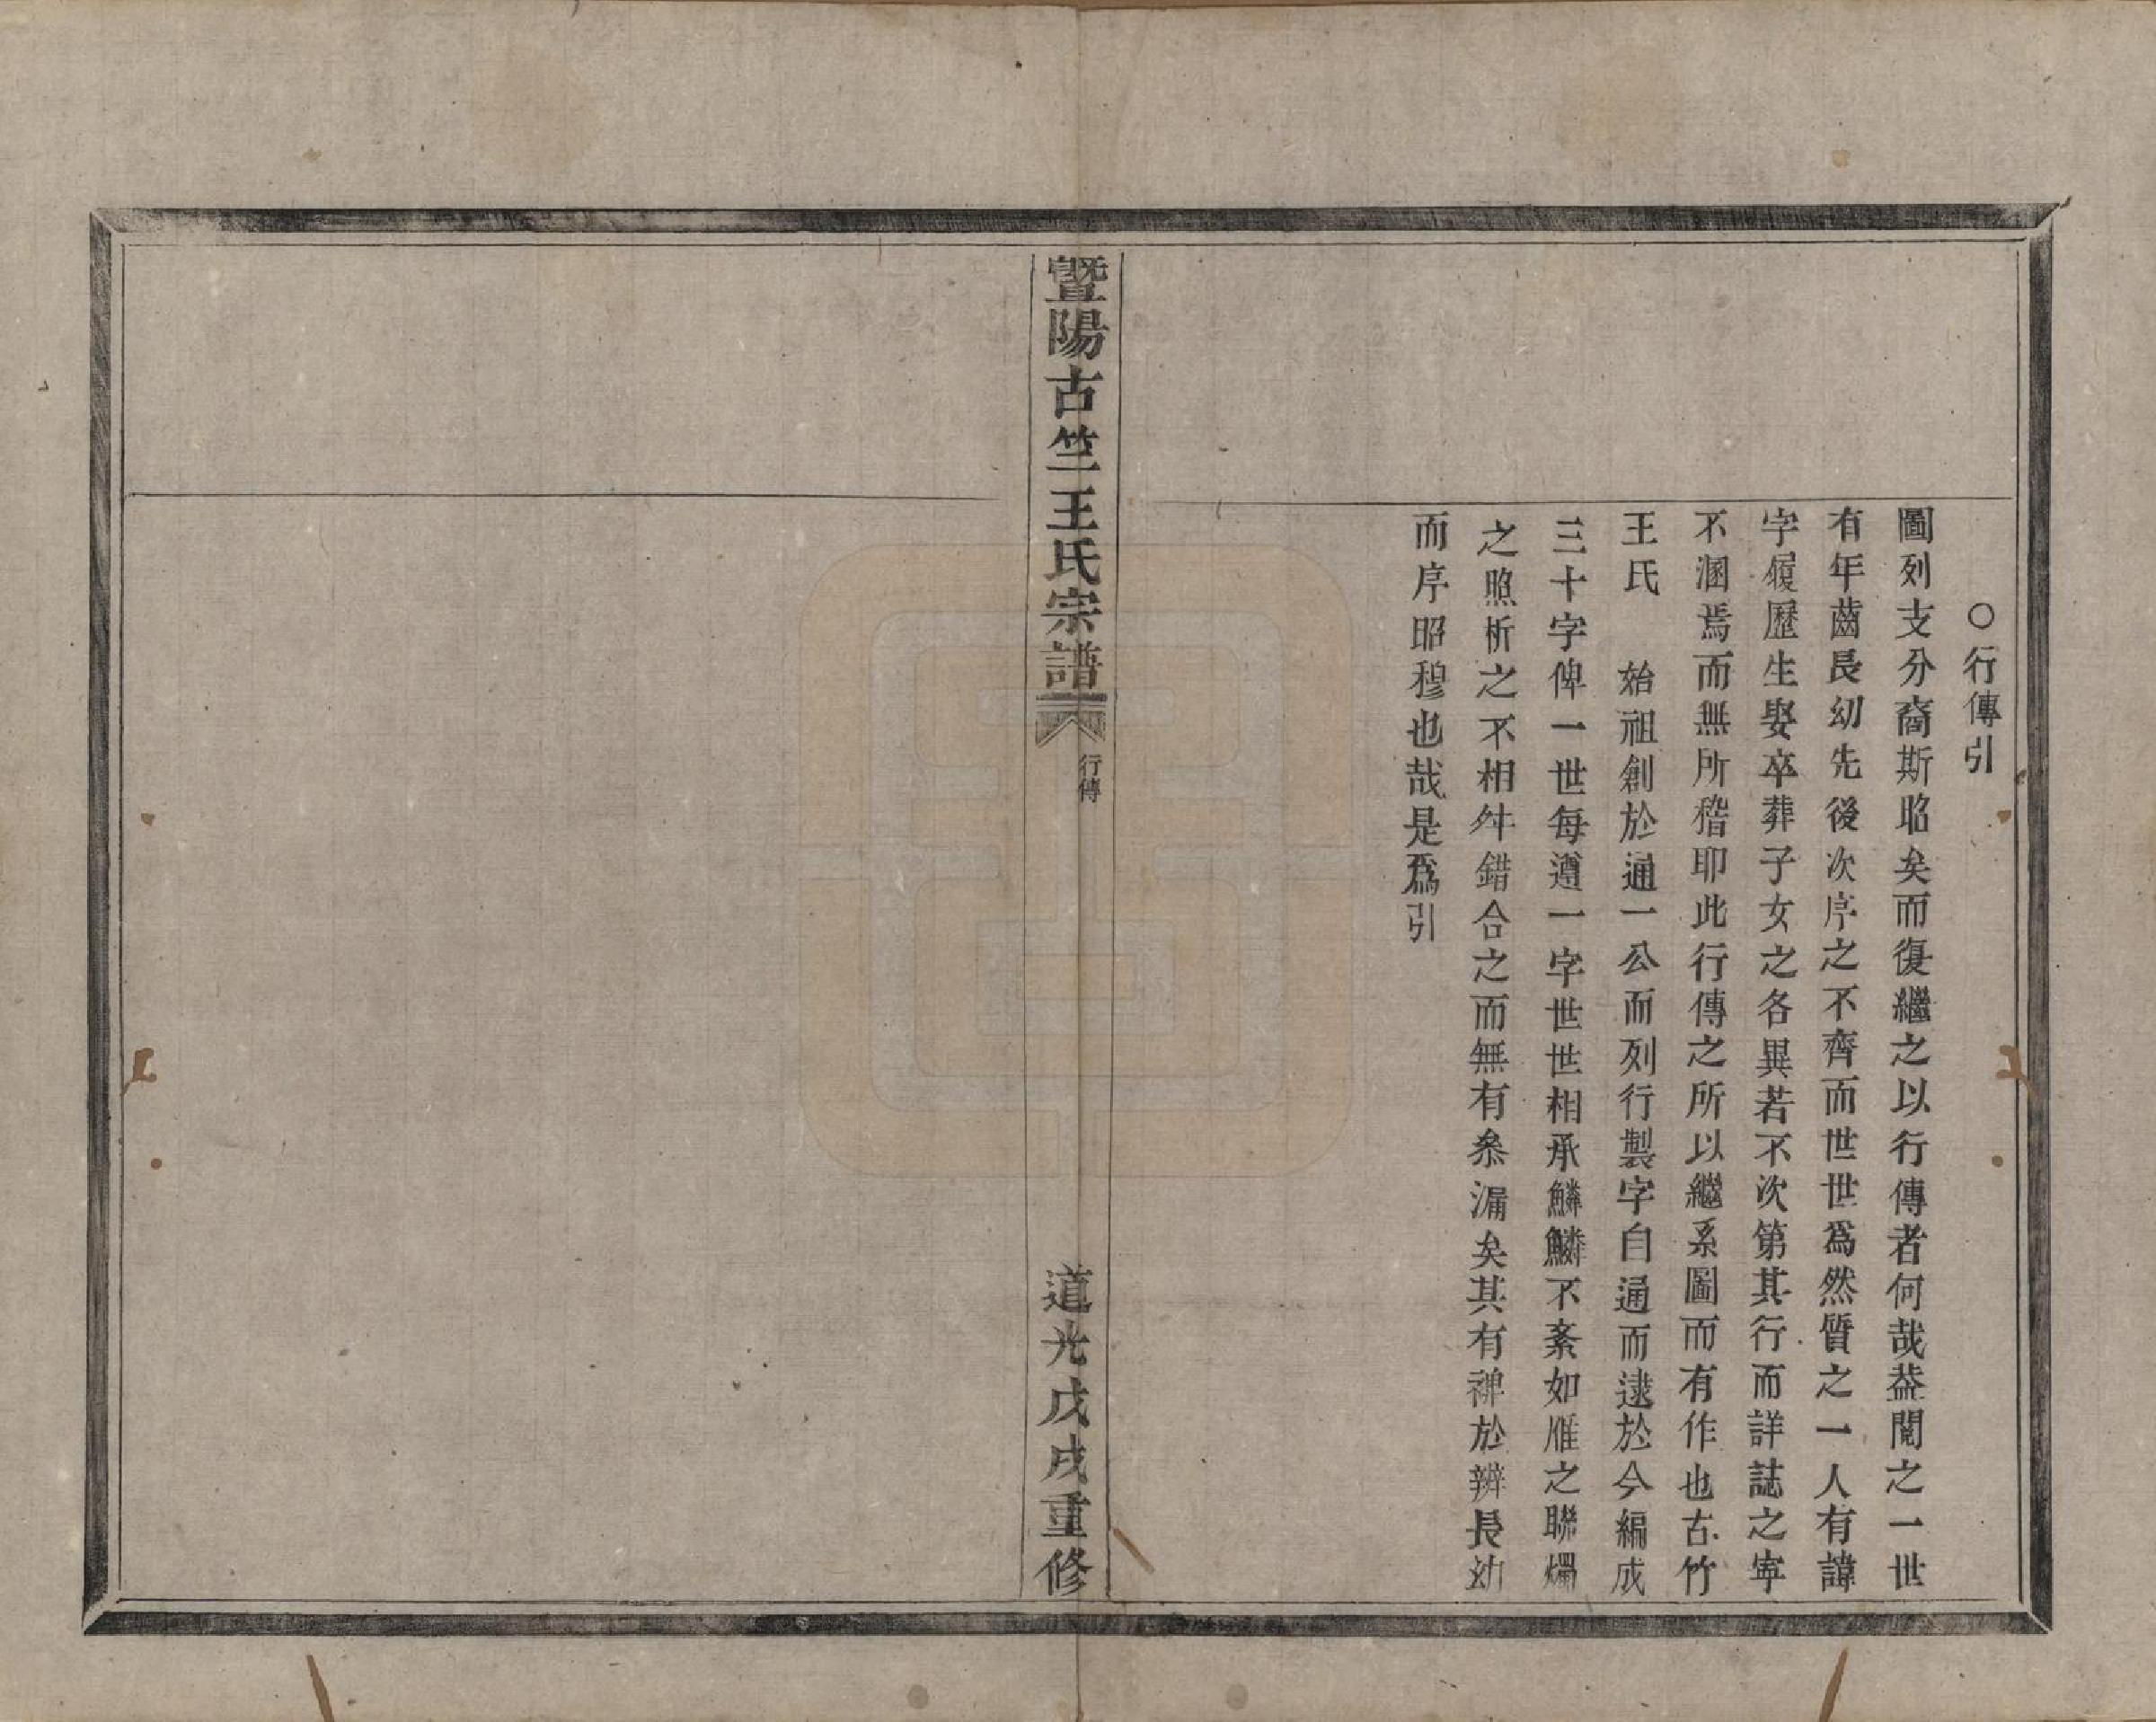 〇行傳引
圖列支分裔斯昭矣而復繼之以行傳者何哉葢閱之一世
有年齒長幼先後次序之不齊而世世爲然質之一人有諱
字履歷生娶卒葬子女之各異若不次第其行而詳誌之寧
不溷焉而無所稽耶此行傳之所以繼系圖而有作也古竹
王氏　始祖創於通一公而列行製字自通而逮於今編成
三十字俾一世每遵一字世世相承鱗鱗不紊如雁之聯燭
之照析之不相舛錯合之而無有叅漏矣其有裨於辨長幼
而序昭穆也哉是爲引
暨陽古竺王氏宗譜
行傳
道光戊戌重修